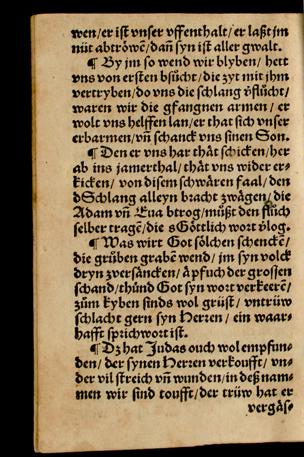 wen/er ist vnser vffenthalt/er laßt jm
nüt abtröwē/dañ syn ist aller gwalt.
¶ By jm so wend wir blyben/ hett
vns von ersten bsůcht/die zyt mit jhm
vertryben/do vns die schlang v̄flůcht/
waren wir die gfangnen armen/ er
wolt vns helffen lan/er that sich vnser
erbarmen/vñ schanck vns sinen Son.
¶ Den er vns har thàt schicken/her
ab ins jamerthal/thàt vns wider er-
kicken/ von disem schwàren faal/den
dSchlang alleyn bracht zwågen/die
Adam vñ Eua btrog/můßt den flůch
selber tragē/die sGöttlich wort v̄log.
¶ Was wirt Got sölchen schenckē/
die grůben grabē wend/ jm syn volck
dryn zversàncken/à pfuch der grossen
schand/thůnd Got syn wort verkeerē/
zům kyben sinds wol grüst/ vntrüw
schlacht gern syn Herren/ ein waar-
hafft sprichwort ist.
¶ Dz hat Judas ouch wol empfun-
den/ der synen Herren verkoufft/ vn-
der vil streich vñ wunden/in deß nam-
men wir sind toufft/der trüw hat er
vergàs-